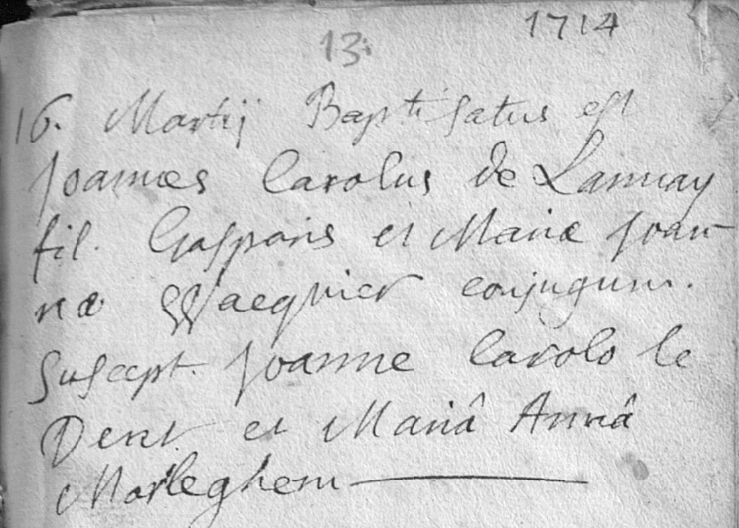 1714
13.
16. Martij Baptisatus est
Joannes Carolus de Lannay
fil. Gasparis et Mariæ Joan
næ Wacquier conjugum.
Suscept. Joanne Carolo le
Dent et Mariâ Annâ
Morleghem